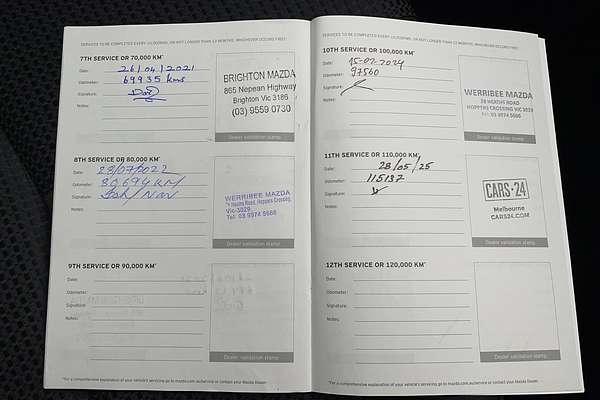 SERVICES TO BE COMPLETED EVERY 10,000KMS, OR NOT LONGER THAN 12 MONTHS, WHICHEVER OCCURS FIRST
7TH SERVICE OR 70,000 KM*
Date: 26/04/2021
Odometer: 69935 kms
Signature:
Notes:
BRIGHTON MAZDA
865 Nepean Highway
Brighton Vic 3186
(03) 9559 0730
Dealer validation stamp
8TH SERVICE OR 80,000 KM*
Date: 23/07/2022
Odometer: 80,694 KM
Signature:
Notes:
WERRIBEE MAZDA
Heaths Road, Hoppers Crossing,
Vic-3029
Tel: 03 9974 5666
Dealer validation stamp
9TH SERVICE OR 90,000 KM*
Date:
Odometer:
Signature:
Notes:
Dealer validation stamp
*For a comprehensive explanation of your vehicle's servicing go to mazda.com.au/service or contact your Mazda Dealer.
SERVICES TO BE COMPLETED EVERY 10,000KMS, OR NOT LONGER THAN 12 MONTHS, WHICHEVER OCCURS FIRST
10TH SERVICE OR 100,000 KM*
Date: 15-02-2024
Odometer: 97560
Signature:
Notes:
WERRIBEE MAZDA
HEATHS ROAD
HOPPERS CROSSING VIC 3029
Tel: 03 9974 5666
Dealer validation stamp
11TH SERVICE OR 110,000 KM*
Date: 28/05/25
Odometer: 115137
Signature:
Notes:
CARS24
Melbourne
CARS24.COM
Dealer validation stamp
12TH SERVICE OR 120,000 KM*
Date:
Odometer:
Signature:
Notes:
Dealer validation stamp
*For a comprehensive explanation of your vehicle's servicing go to mazda.com.au/service or contact your Mazda Dealer.